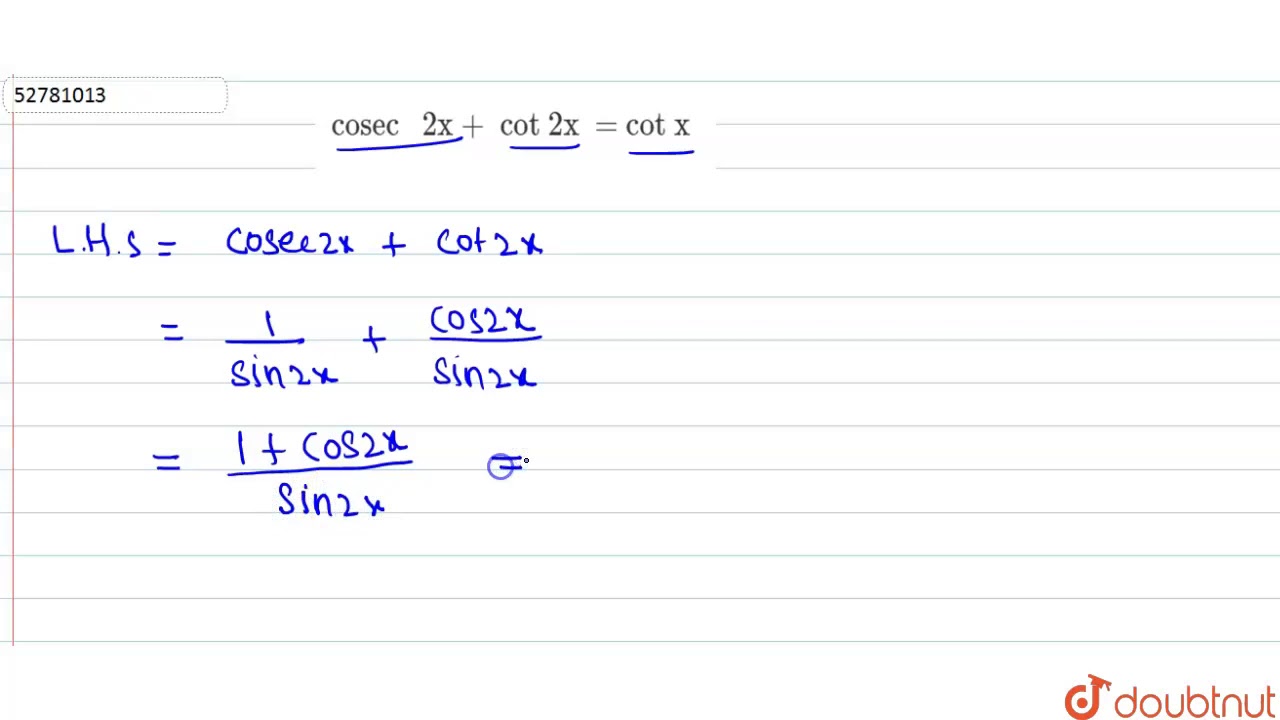 52781013
cosec 2x + cot 2x = cot x
L.H.S = cosec2x + cot2x
= 1/sin2x + cos2x/sin2x
= 1 + cos2x/sin2x =
doubtnut